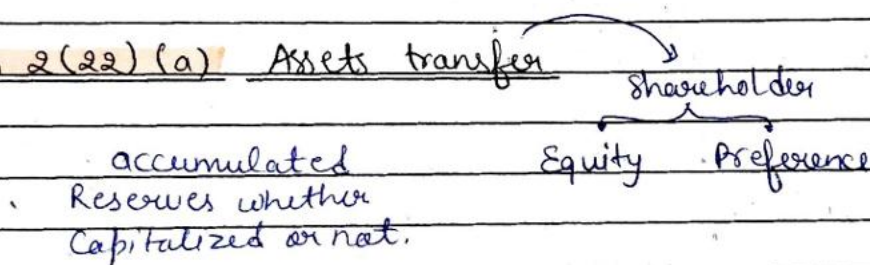 2(22) (a) Assets transfer
Shareholder
accumulated Equity Preference
Reserves whether
Capitalized or not.